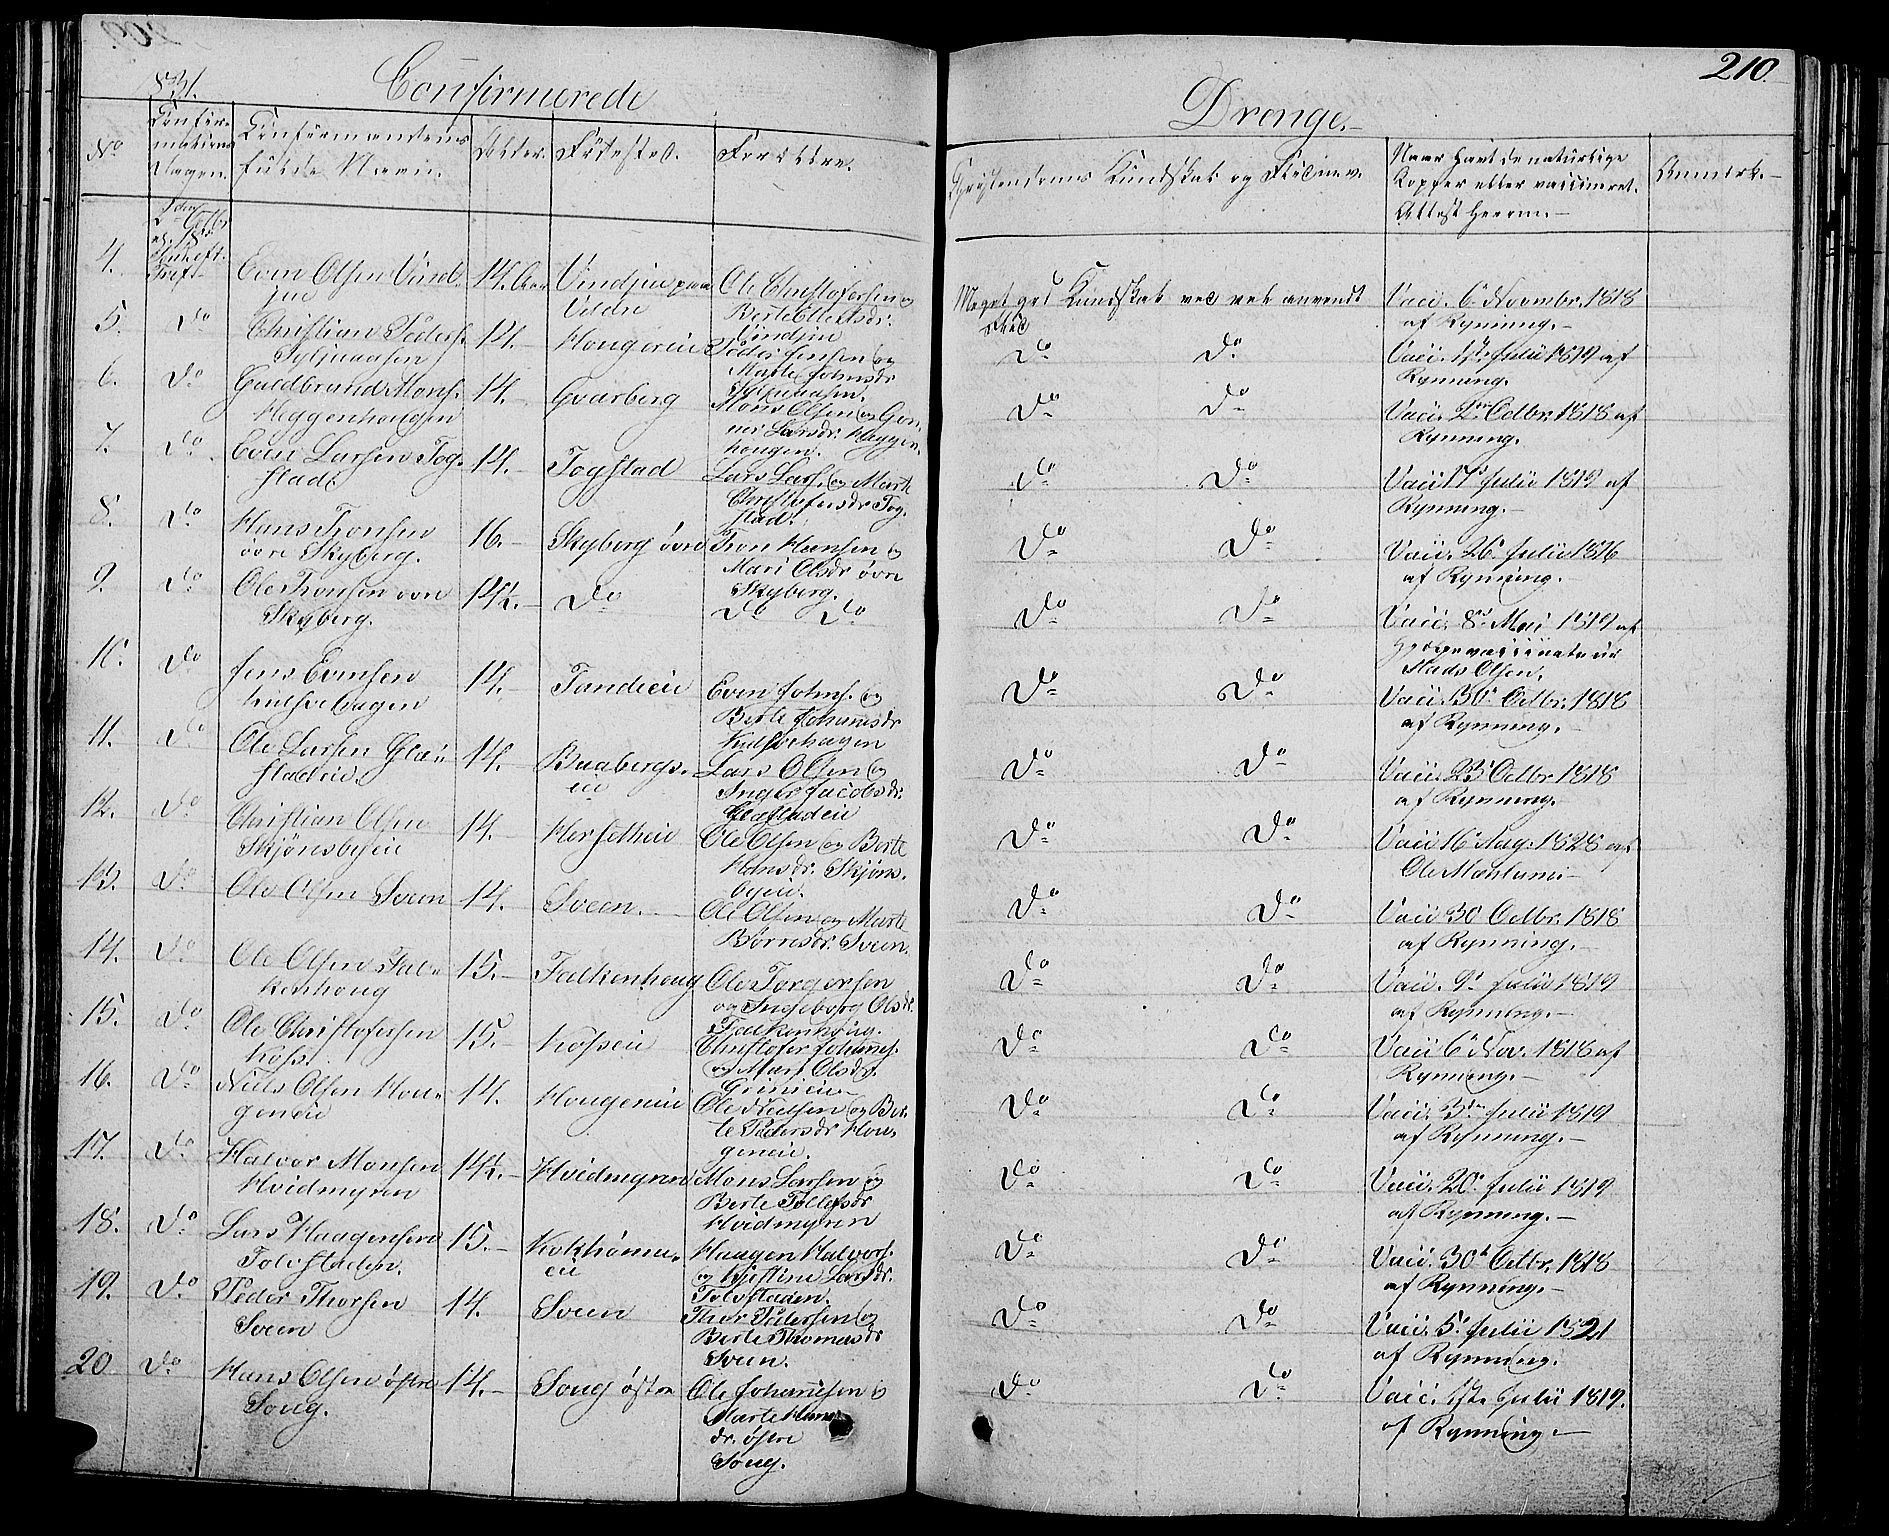 1831.
Confirmerede
Drenge.
210.
No
Confir-
mations
Dagen.
Confirmandens
fulde Navn.
Alder.
Födested.
Forældre.
Christendoms Kundskab og Flid
Naar havt de naturlige
Kopper eller vaccineret.
Attest herom.
Anmerk.
4.
Even Olsen Vind-
jue
14. Aar
Vindjue paa
Ole Christofersen og
Berte
Vindjue
Meget god Kundskab vel anvendt
Flid
Vacc. 6 Novembr. 1818
af Rynning.
5.
Do
Christian Peders.
14.
Peder Jensen og
Marte Johnsdr
Do
Do
Vacc. Julii 1819 af
Rynning.
6.
Do
Guldbrand Mons.
Heggenhougen
14.
Gvarberg
Mons Olsen og Gun-
Larsdr. Heggen-
hougen.
Do
Do
Vacc. Octbr. 1818 af
Rynning.
7.
Do
Even Larsen Tog-
stad
14.
Togstad
Lars Lars. og Marte
Christofersdr Tog-
stad.
Do
Do
Vacc 17 Julii 1819 af
Rynning.
8.
Do
Hans Tronsen
övre Skyberg.
16.
Skyberg övre
Tron Hansen og
Mari Olsdr övre
Skyberg.
Do
Do
Vacc. 26 Julii 1816
af Rynning.
9.
Do
Ole Tronsen övre
Skyberg.
14½.
Do
Do Do
Do
Do
Vacc. 8 Mai 1819 af
Mads Olsen.
10.
Do
Jens Evensen
14.
Even Johns. og
Berte Johannesdr
Do
Do
Vacc. 30 Octbr. 1818
af Rynning.
11.
Do
Ole Larsen Glæ-
staden.
14.
Lars Olsen og
Inger Jacobsdr.
Glæstaden
Do
Do
Vacc. 23 Octbr 1818
af Rynning.
12.
Do
Christian Olsen
Skjönsbyeie
14.
Ole Olsen og Berte
Hansdr. Skjöns-
byeie.
Do
Do
Vacc 16 Aug. 1828 af
Ole Mæhlum
13.
Do
Ole Olsen Sveen
14.
Sveen.
Ole Olsen og Marte
Börresdr. Sveen.
Do
Do
Vacc 30 Octbr. 1818
af Rynning.
14.
Do
Ole Olsen Fal-
kenhoug
15.
Falkenhoug
Ole Torgersen
og Ingeborg Olsdr.
Falkenhoug.
Do
Do
Vacc. 9 Julii 1819
af Rynning.
15.
Do
Ole Christofersen
Koss.
15.
Kosseie
Christofer Johannes.
og Mari Olsdr.
Do
Do
Vacc 6 Nov. 1818 af
Rynning.
16.
Do
Niels Olsen Hou-
geneie
14.
Hougeneie
Ole Nielsen og Ber-
te Pedersdr Hou-
geneie.
Do
Do
Vacc. 3 Julii 1819
af Rynning.
17.
Do
Halvor Monsen
Hvidmyren
14½.
Hvidmyren
Mons Larsen og
Berte Tollefsdr
Hvidmyren
Do
Do
Vacc. 20 Julii 1819
af Rynning.
18.
Do
Lars Haagensen
Tolvstaden.
15.
Haagen Halvors.
og Kjestine Larsdr.
Tolvstaden.
Do
Do
Vacc. 30 Octbr. 1818
af Rynning.
19.
Do
Peder Thorsen
Sveen
14.
Sveen
Thor Pedersen og
Berte Thomasdr
Sveen.
Do
Do
Vacc. 5 Julii 1821
af Rynning.
20
Do
Hans Olsen östre
Soug.
14.
Soug östre
Ole Johannesen og
Marte Hans-
dr. östre
Soug.
Do
Do
Vacc. Julii 1819.
af Rynning.